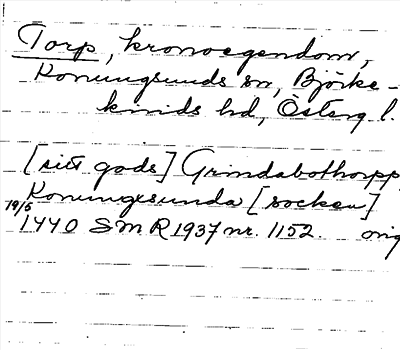 Torp, kronoegendom,
Konungsunds sn, Björke-
kinds hd, Österg l.
[sitt gods] Grindabothorpp
Konungesunda [socken]
19/6
1440 SMR 1937 nr. 1152. orig